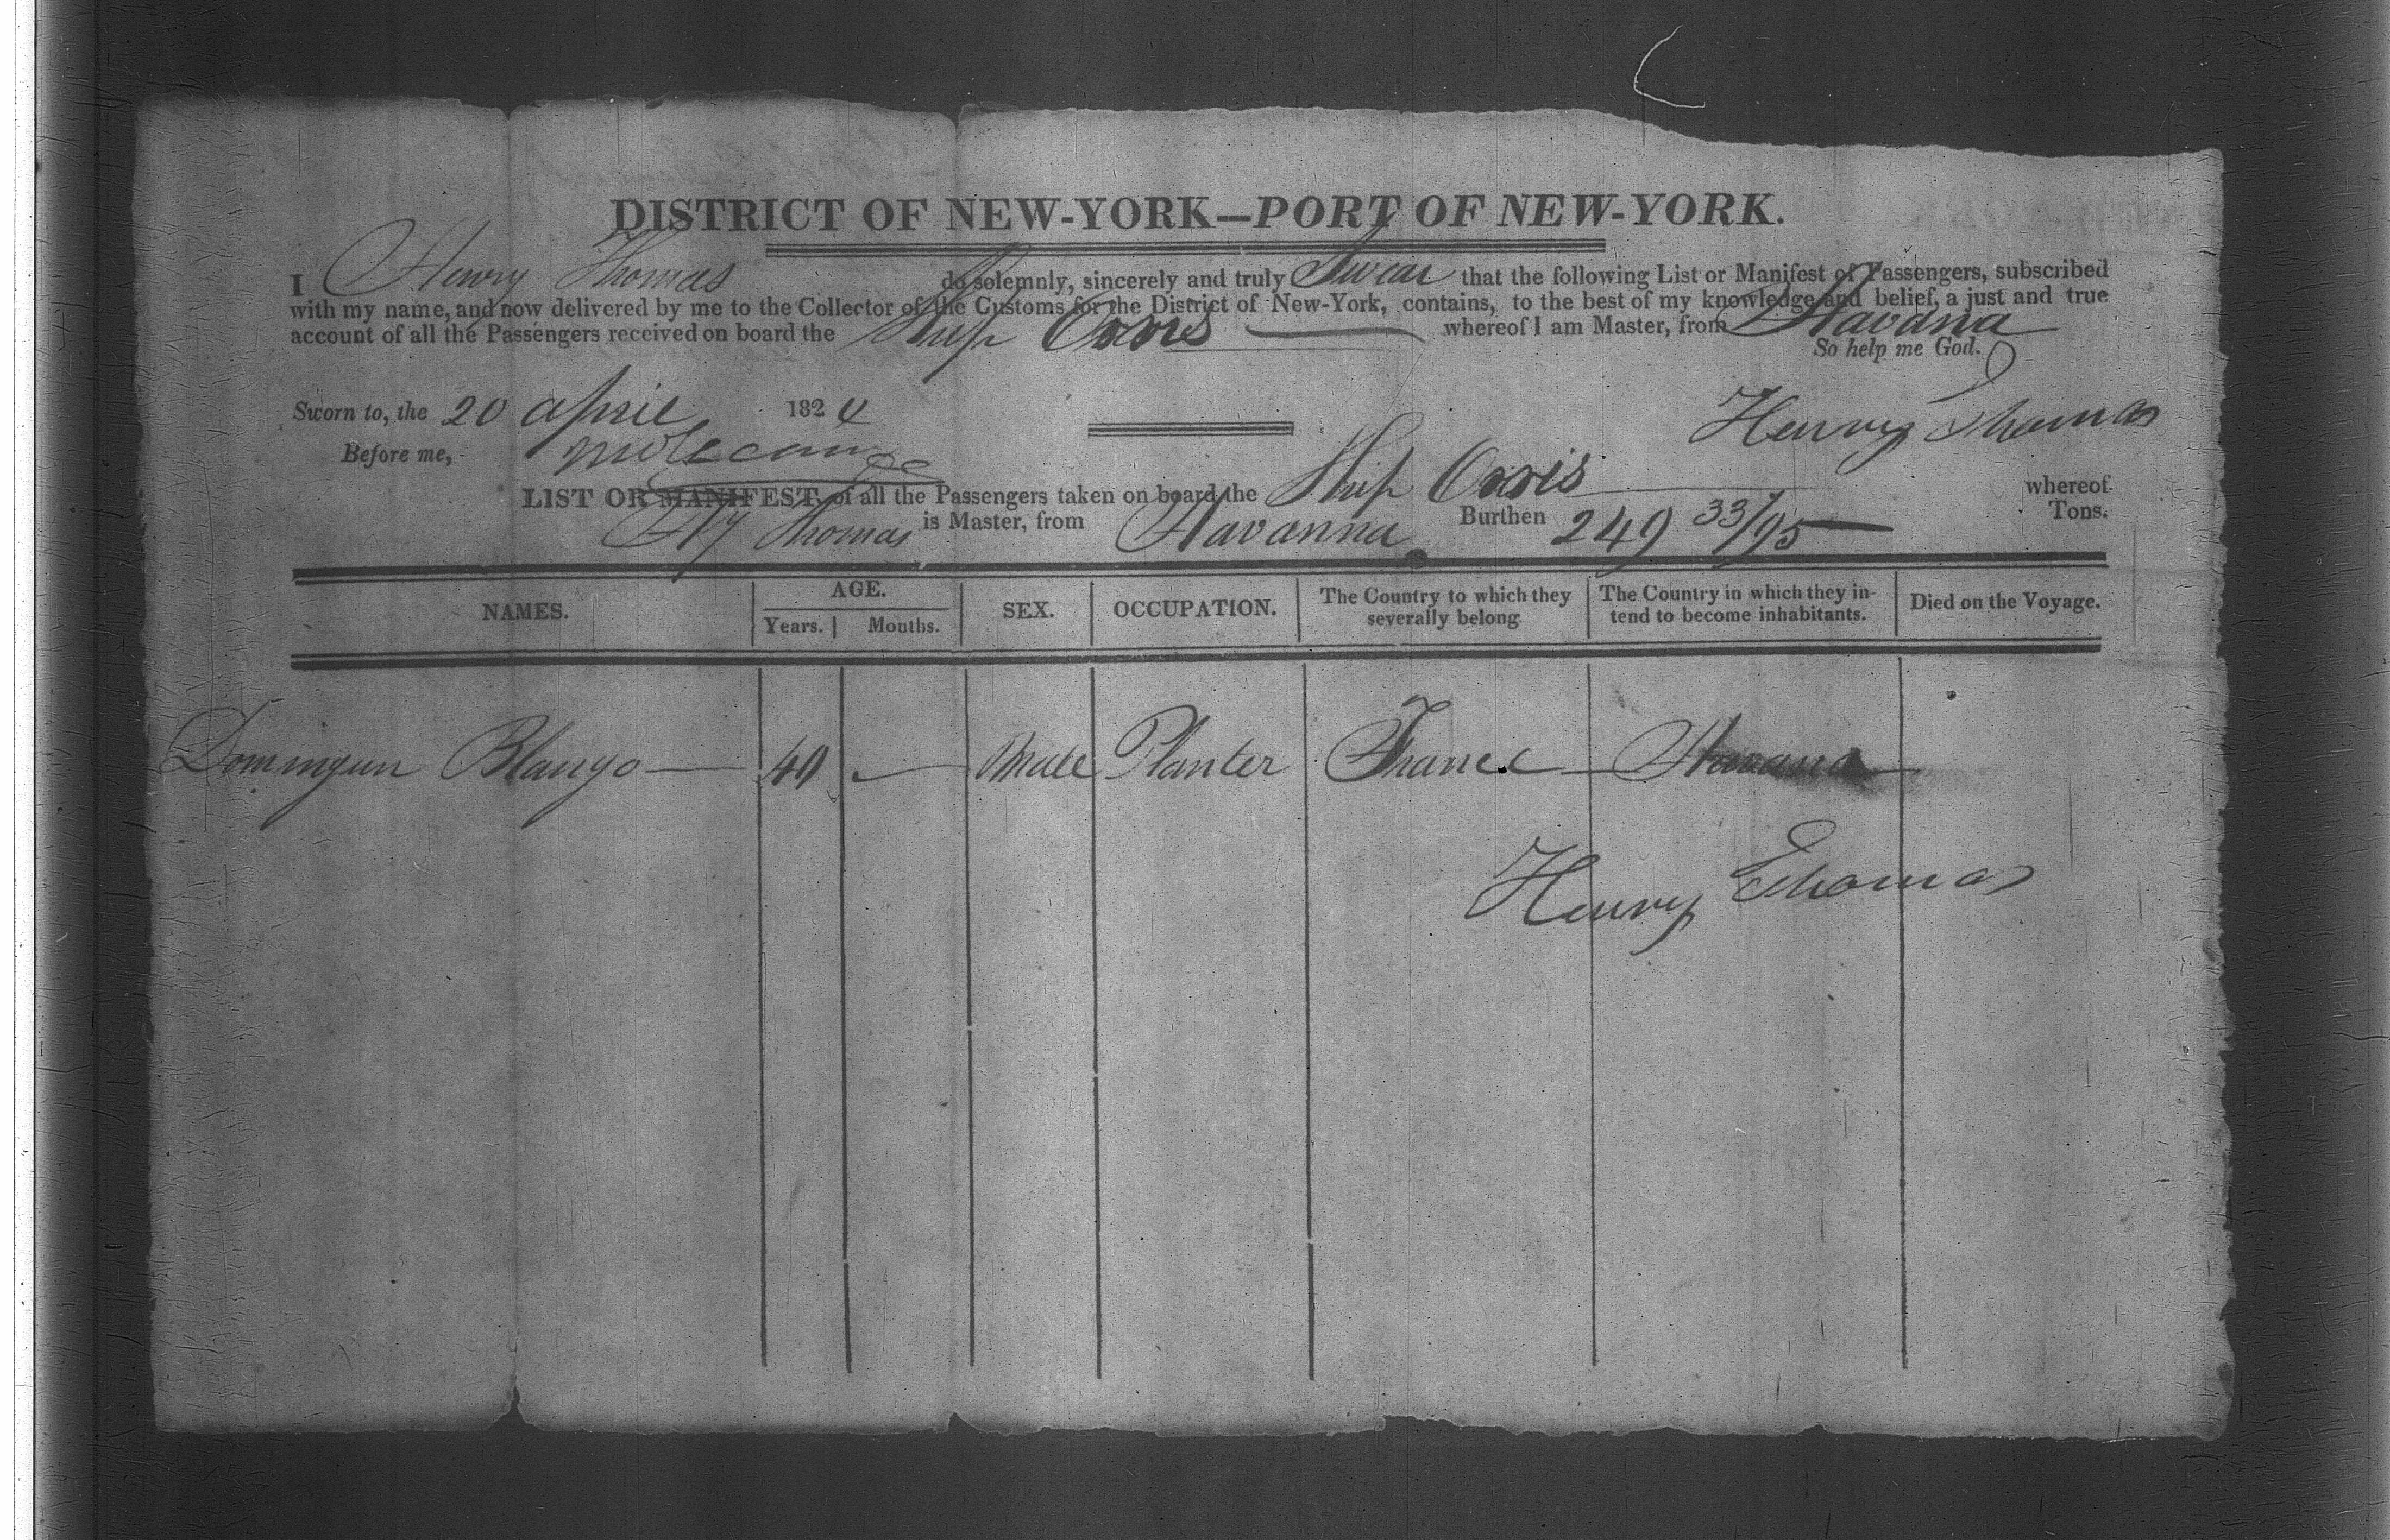 DISTRICT OF NEW-YORK—PORT OF NEW-YORK.
I Henry Thomas do solemnly, sincerely and truly Swear that the following List or Manifest of Passengers, subscribed
with my name, and now delivered by me to the Collector of the Customs for the District of New-York, contains, to the best of my knowledge and belief, a just and true
account of all the Passengers received on board the Ship whereof I am Master, from Havana
So help me God.
Sworn to, the 20 april 1824
Henry Thomas
Before me,
LIST OR MANIFEST, of all the Passengers taken on board the Ship whereof
Hy Thomas is Master, from Havanna Burthen 249 33/95 Tons.
NAMES. AGE. SEX. OCCUPATION. The Country to which they severally belong. The Country in which they intend to become inhabitants. Died on the Voyage.
Years. Months.
Blango 40 Male Planter France Havana
Henry Thomas